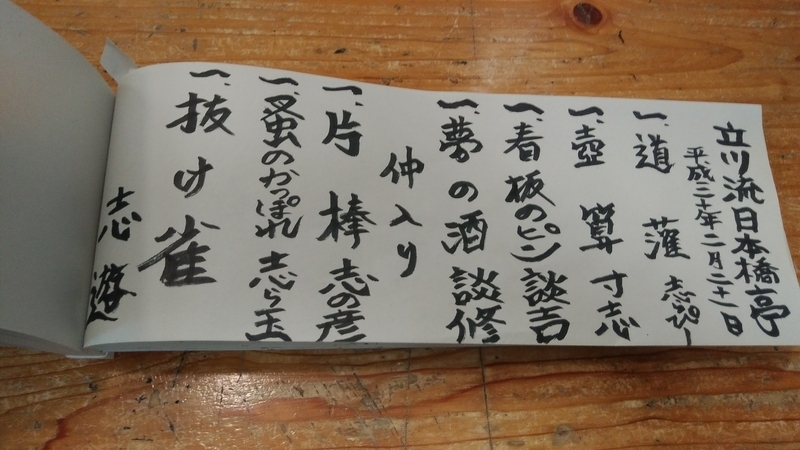 立川流日本橋亭
平成三十年二月二十一日
一、道灌 志ぴー
一、壺算 寸志
一、看板のピン 談吉
一、夢の酒 談修
仲入り
一、片棒 志の彦
一、蚤のかっぽれ 志ら玉
一、抜け雀
志遊